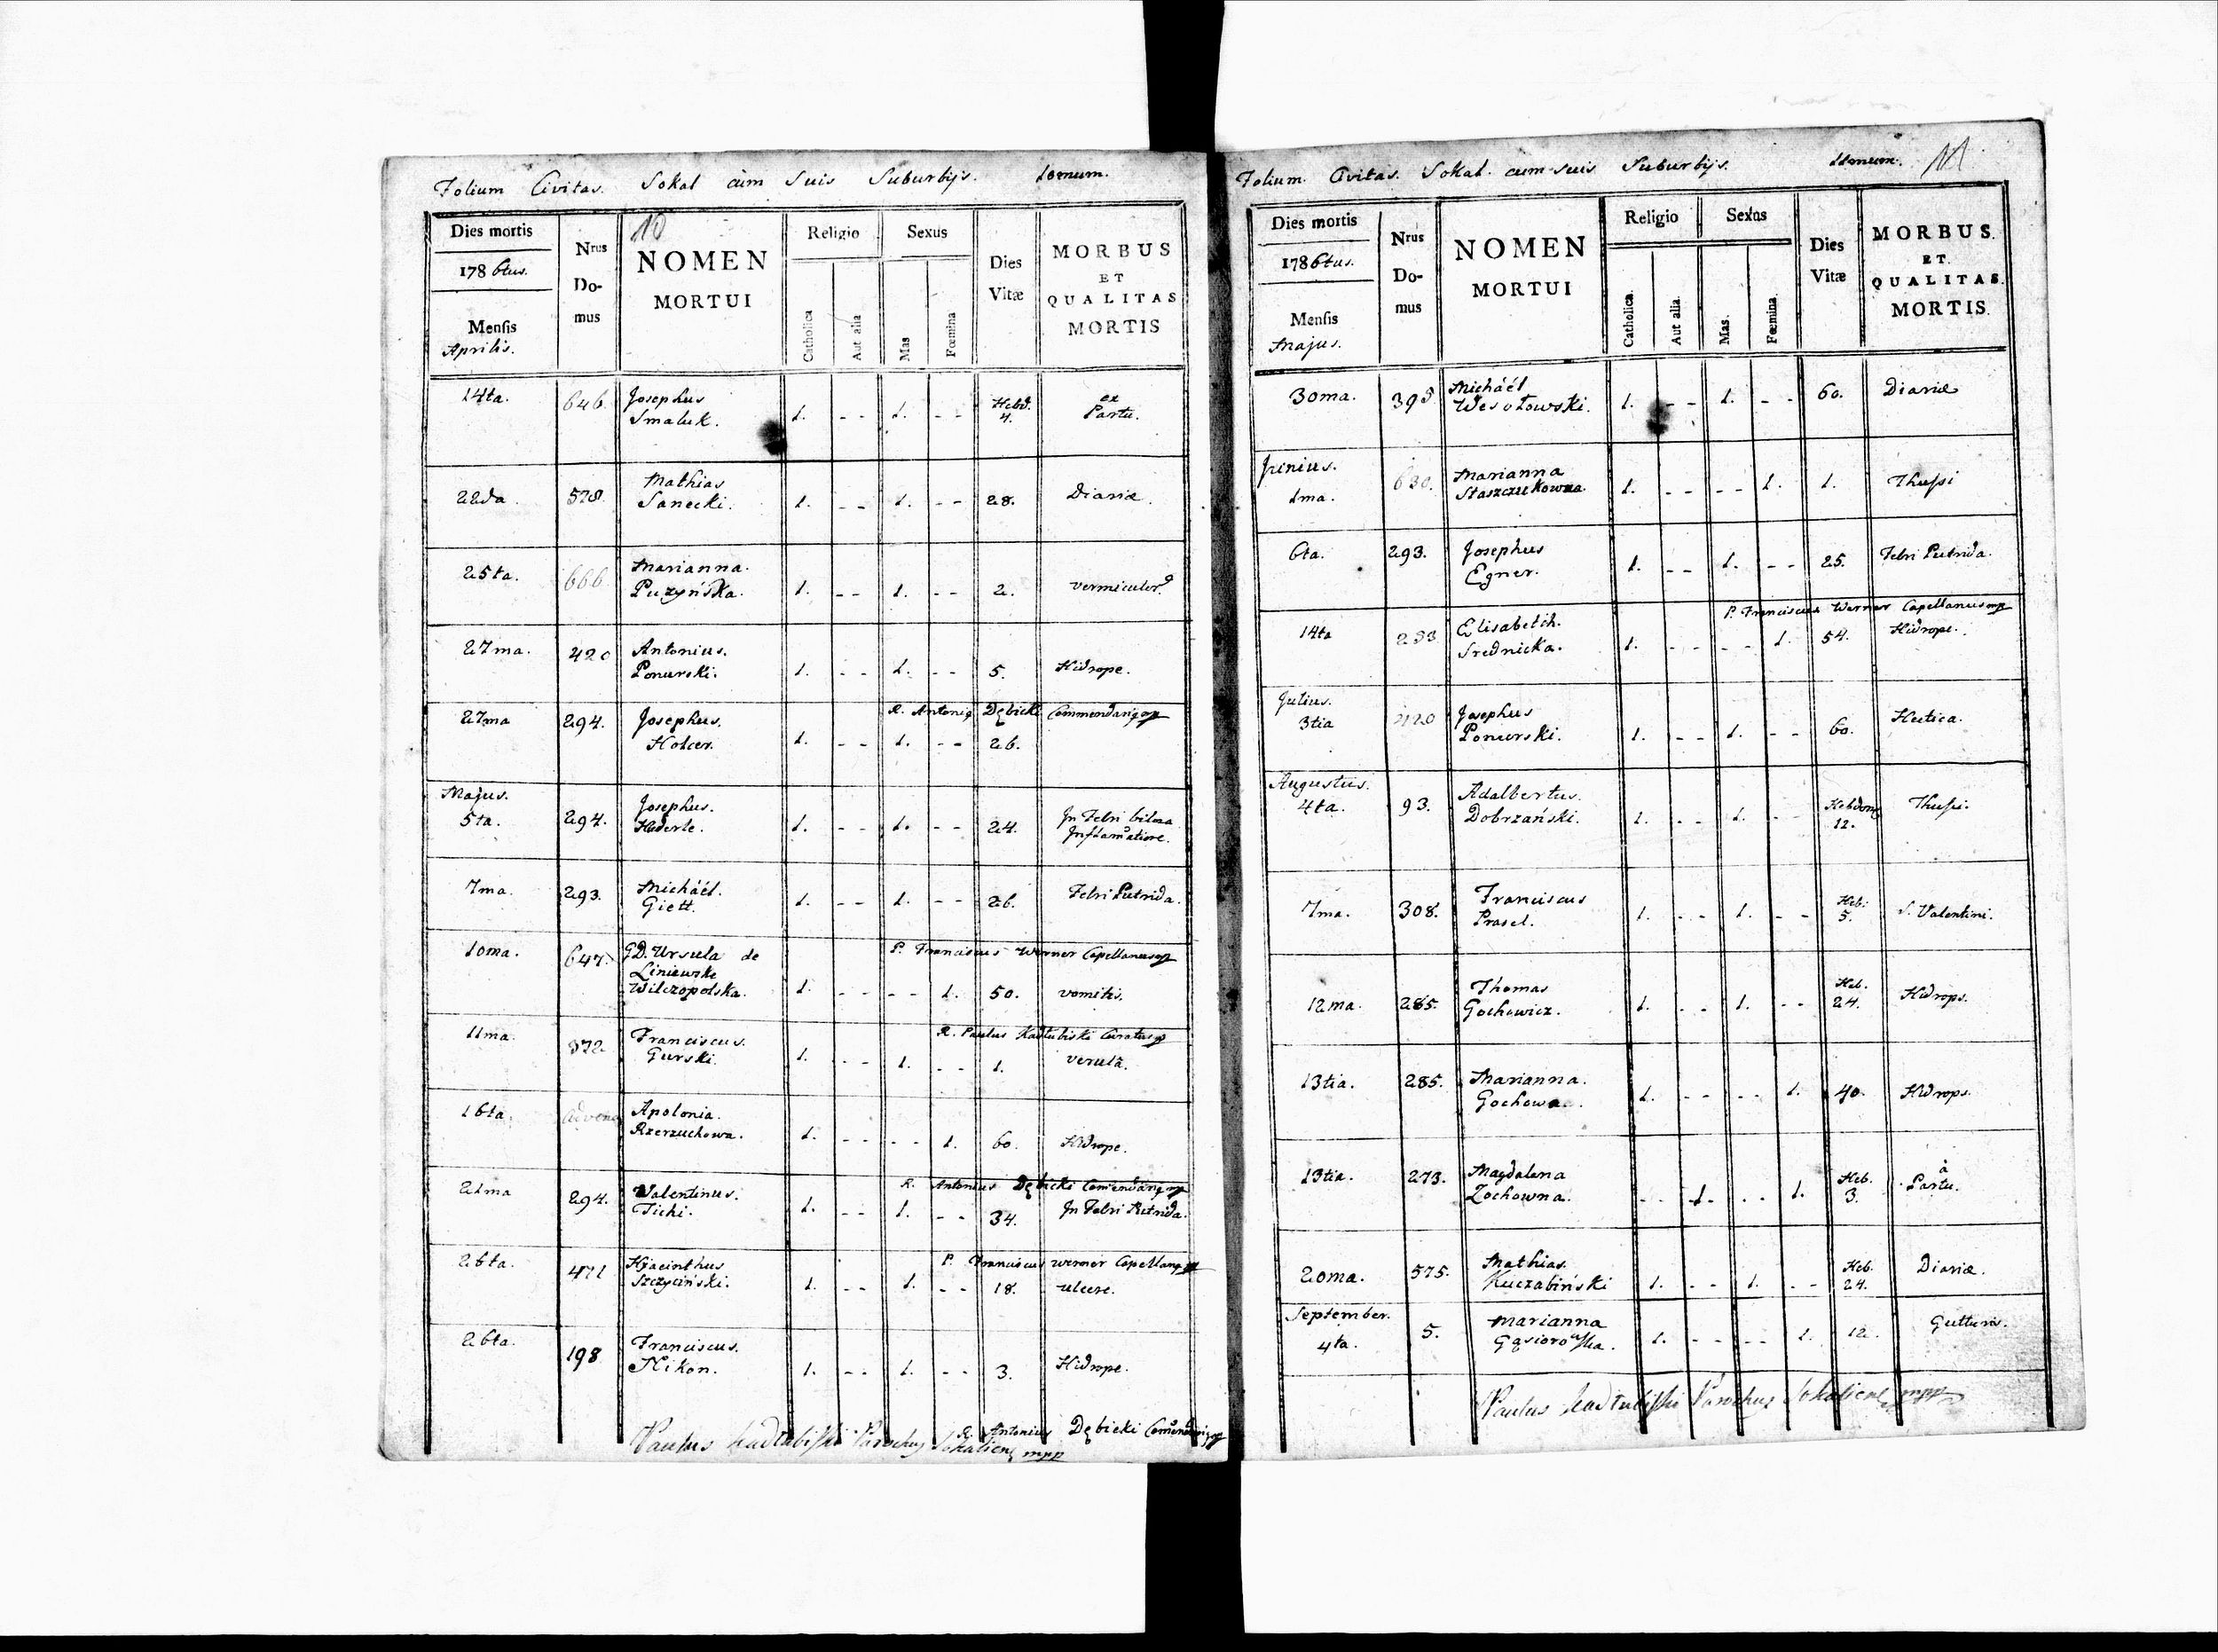 Folium Civitas. Sokal cum Suis Suburbijs. 10mum.
10
Dies mortis
1786tus.
Mensis
Aprilis.
Nrus
Do-
mus
NOMEN
MORTUI
Religio
Catholica
Aut alia
Sexus
Mas
Fœmina
Dies
Vitæ
MORBUS
ET
QUALITAS
MORTIS
14ta. 646. Josephus Smaluk. 1. - - 1. - - Hebd. 4. ex Partu.
22da. 528. Mathias Sanecki. 1. - - 1. - - 28. Diariæ.
25ta. 666 Marianna. Puzyńska. 1. - - 1. - - 2.
27ma. 420 Antonius. Ponurski. 1. - - 1. - - 5. Hidrope.
27ma 294. Josephus. Holcer. 1. - - 1. - - 26.
R. Antonig Dębicki
Majus.
5ta. 294. Josephus. 1. - - 1. - - 24. In Febri
7ma. 293. Micháél. Giett. 1. - - 1. - - 26. Febri Putrida.
10ma. 647. GD. Ursula de Liniewske Wilczopolska. 1. - - - - 1. 50. vomitis.
P. Franciscus Werner Capellanus mp
11ma. 372 Franciscus. Gurski. 1. - - 1. - - 1.
R. Paulus Kadłubiski Curatus mp
16ta. advena Apolonia. Rzerzuchowa. 1. - - - - 1. 60. Hidrope.
21ma 294. Valentinus. Tichi. 1. - - 1. - - 34. In Febri Putrida.
R. Antonius Dębicki
26ta. 471 Hyacinthus Szczyciński. 1. - - 1. - - 18. ulcere.
P. Franciscus Werner
26ta. 198 Franciscus. Nikon. 1. - - 1. - - 3. Hidrope.
R. Antonius Dębicki
Paulus Kadłubiski Parochus
Folium Civitas. Sokal. cum suis Suburbijs. 11mum. 11
Dies mortis
1786tus.
Mensis
Majus.
Nrus
Do-
mus
NOMEN
MORTUI
Religio
Catholica.
Aut alia.
Sexus
Mas.
Fœmina.
Dies
Vitæ
MORBUS.
ET.
QUALITAS.
MORTIS.
30ma. 398 Micháél Wesołowski. 1. - - 1. - - 60. Diariæ
Junius.
1ma. 630. Marianna Staszczukowna 1. - - - - 1. 1. Thussi
6ta. 293. Josephus Egner. 1. - - 1. - - 25. Febri Putrida.
P. Franciscus Werner Capellanus mp
14ta 233 Elisabeth. Srednicka. 1. - - - - 1. 54. Hidrope.
Julius.
3tia 420 Josephus Ponurski. 1. - - 1. - - 60. Hectica.
Augustus.
4ta. 93. Adalbertus. Dobrzański. 1. - - 1. - - 12. Thussi.
7ma. 308. Franciscus Prasel. 1. - - 1. - - Heb. 5. S. Valentini.
12ma. 285. Thomas Gochowicz. 1. - - 1. - - Heb. 24. Hidrops.
13tia. 285. Marianna. Gochowa. 1. - - - - 1. 40. Hidrops.
13tia. 273. Magdalena Zochowna. - - 1. - - 1. Heb. 3. à Partu.
20ma. 575. Mathias. Kuczabiński 1. - - 1. - - Heb. 24. Diariæ.
September.
4ta. 5. Marianna Gąsiorowska. 1. - - - - 1. 12. Gutturis.
Paulus Kadłubiski Parochus mpp